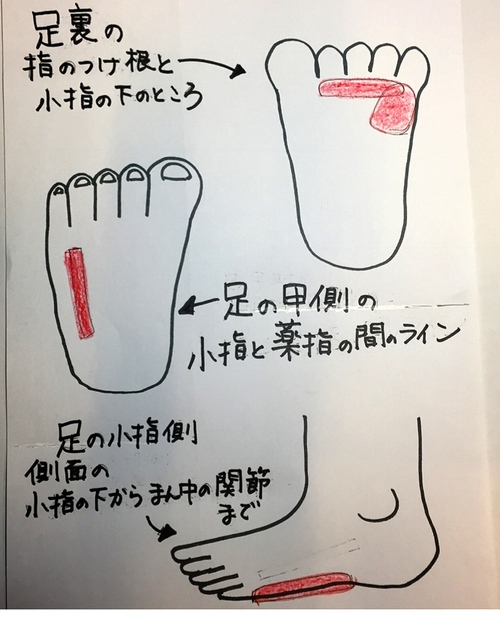 足裏の
指のつけ根と
小指の下のところ
足の甲側の
小指と薬指の間のライン
足の小指側
側面の
小指の下からまん中の関節
まで